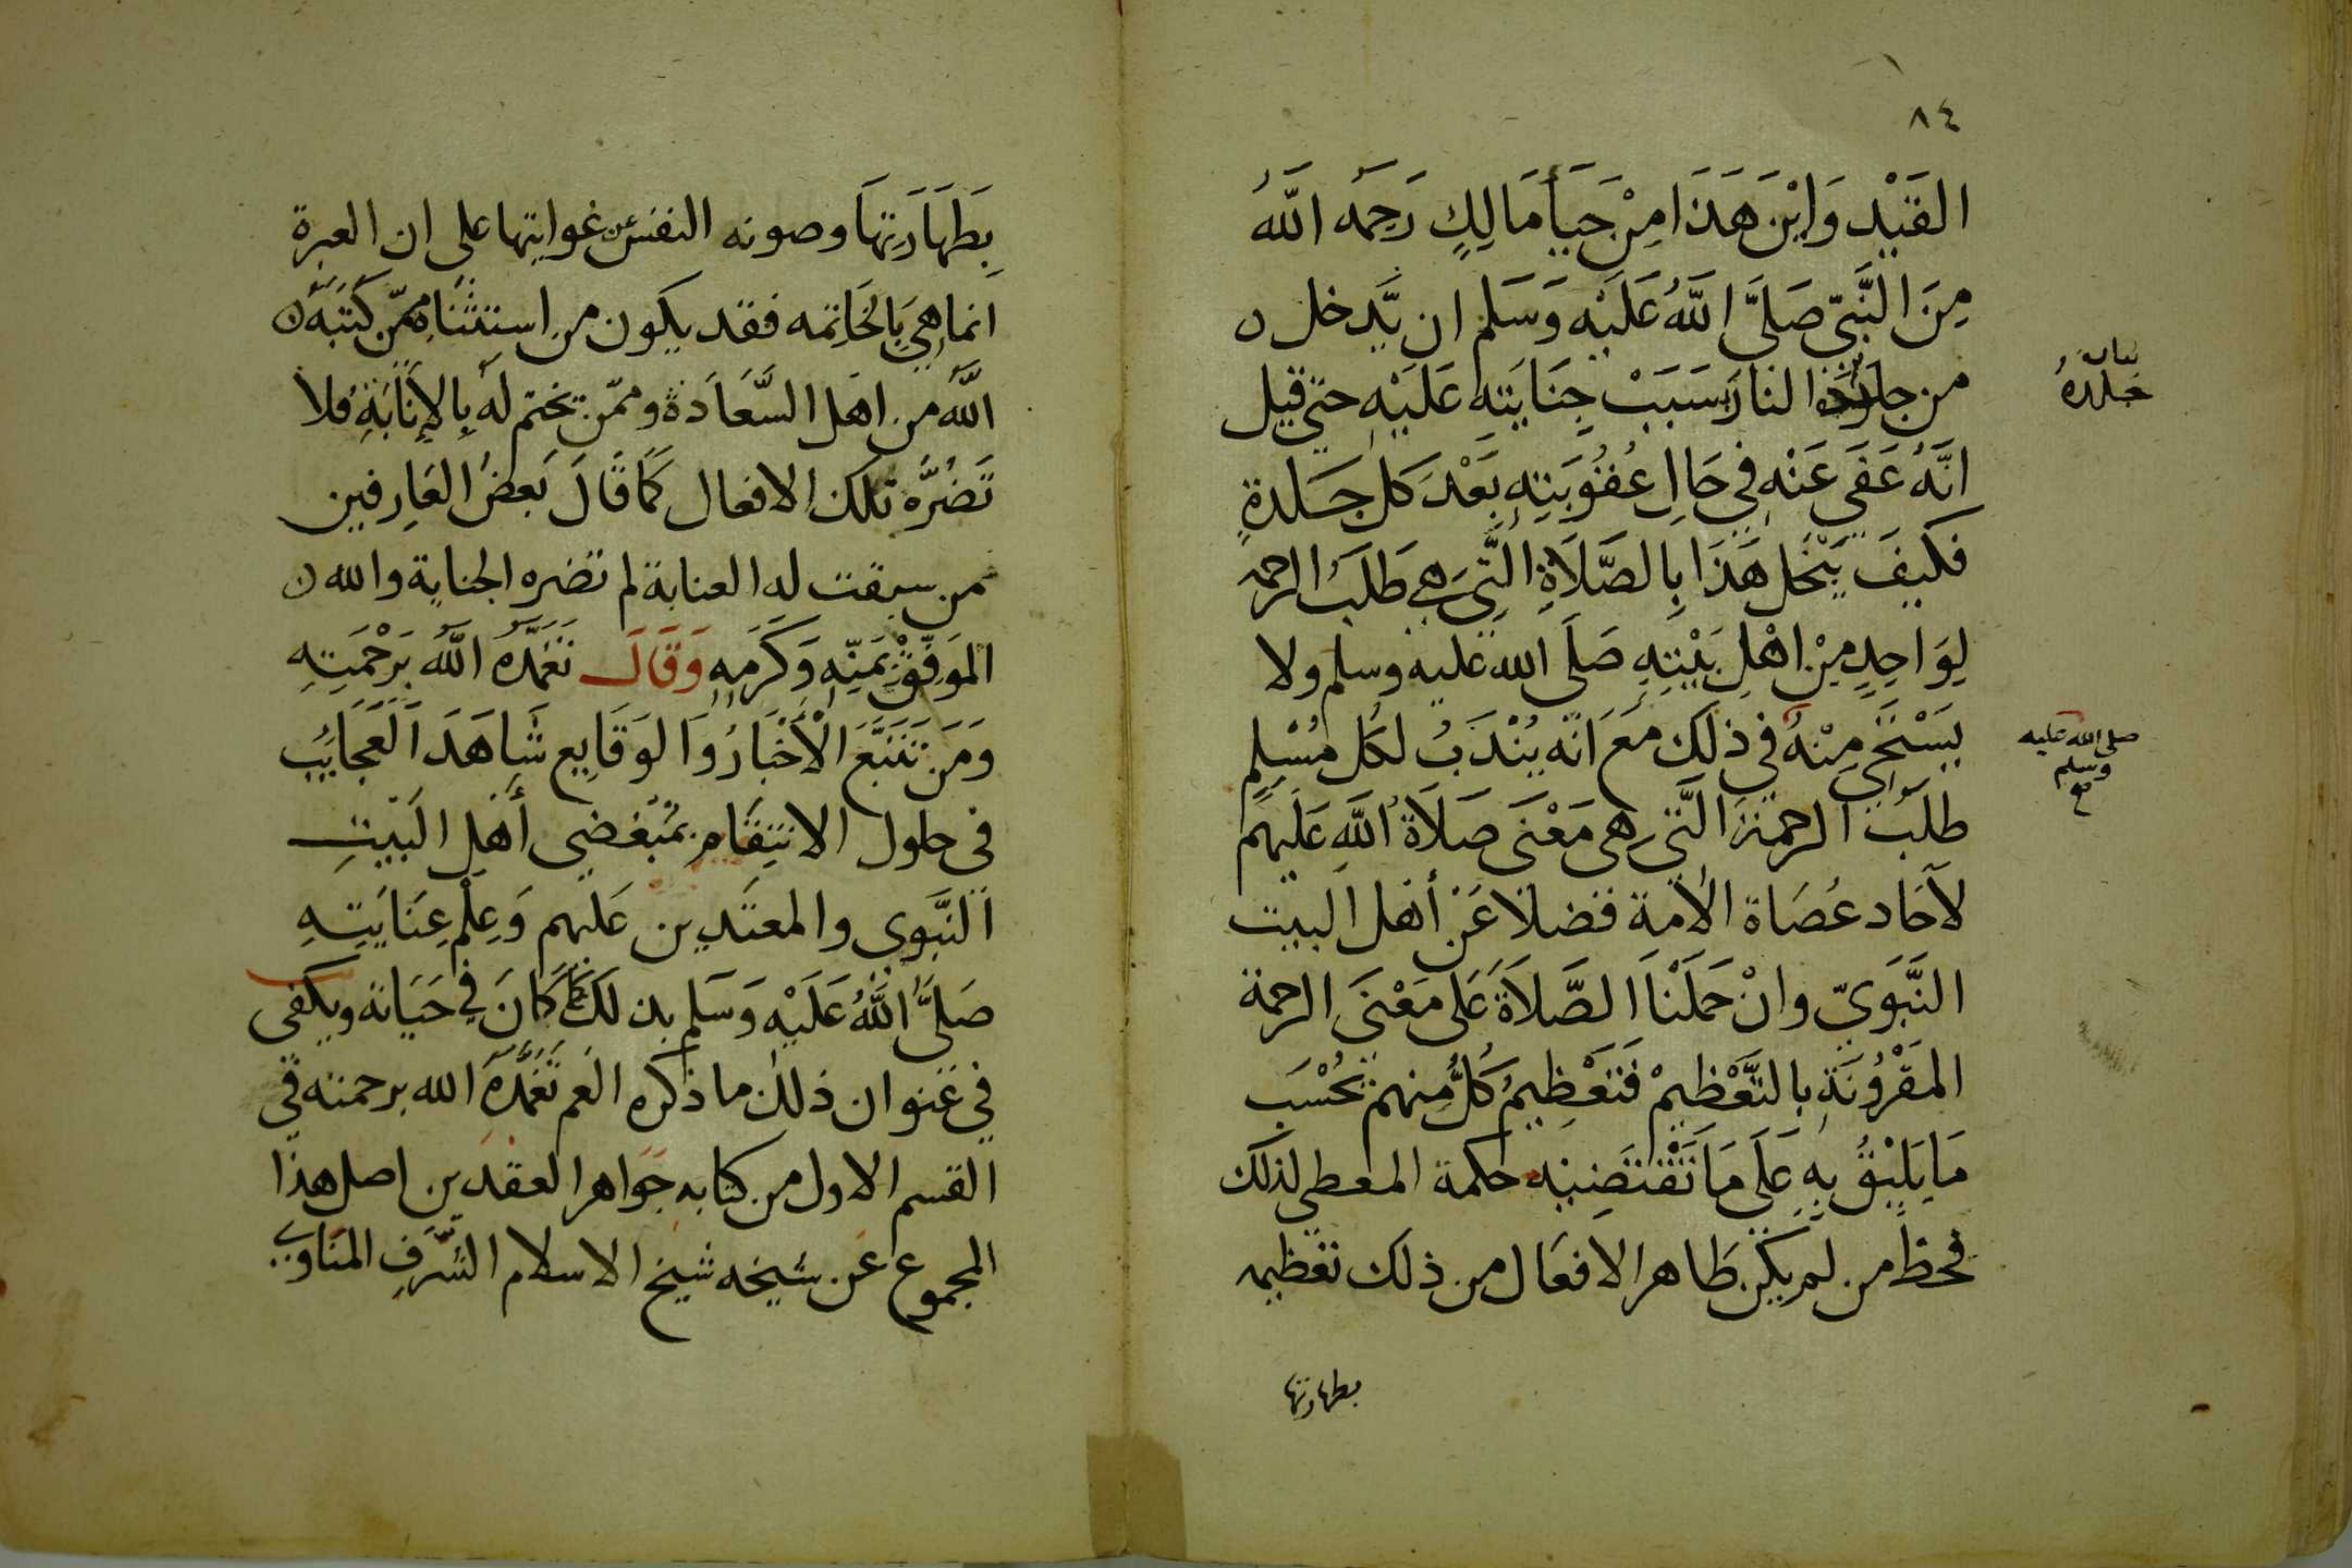 ٨٤
القَيْد وَايْنَ هَذَا مِنْ حَيَأ مَالِكٍ رَحِمَه اللَّهُ
مِنَ النَّبِيّ صَلَّى اللَّهُ عَلَيْه وَسَلم ان يَّدخل
من النار بسَبَبْ جِنَايَته عَلَيْهِ حتي قيل
انَّهُ عَفَى عَنْه فِي حَالِ عُقُوبَتِهِ بَعْدَ كل جَلدةٍ
فكيفَ يَبْخَل هَذَا بِالصَّلَاةِ الَّتِي هي طَلَبُ الرحمه
لِوَاحِدٍ مِنْ اهْلِ بَيْتِهِ صَلَى الله عليه وسلم ولا
يَسْتَحِي مِنْهُ في ذلك مَعَ انّه يُنْدَبُ لكُل مُسْلِمٍ
طلَبُ الرحمَة الَّتي هي مَعْنَى صَلَاةُ اللَّهِ عَلَيهِم
لآحَاد عُصَاة الأمة فضلاً عَنْ أهل البيت
النَّبَوَيّ وانْ حَمَلْنَا الصَّلَاةَ عَلى مَعْنَى الرحمة
المَقْرُونَةِ بالتَّعْظِيمْ فَتَعْظِيمُ كلٌّ مِنهم بحُسْب
مَا يَلِيْقُ بِه عَلَى مَا تَقْتَضِيْه حكمة المعطي لذلك
فحظ من لم يكن طاهر الافعَال من ذلك تعظيمه
بطهارتها
جلده
صلي الله عليه
وسلم
صح
بِطَهَارَتِهَا وصونه النفس عن غوايتها على ان العبرة
انما هِيَ بِالخَاتِمه فقد يكون من استثنَاه ممّن كَتَبَهُ
اللَّهُ من اهل السَّعَادَة وممّن يختم لهُ بِالإنَابَةِ فلا
تَضُرُّه تلك الافعال كمَا قَالَ بَعضُ العَارِفين
من سبقت له العناية لم تضره الجناية والله
المَوَفِّقُ بِمَنِّهِ وَكَرَمِهِ وَقَالَ تَغَمَّدَهُ اللَّهُ بَرَحْمَتِهِ
وَمَن تَتَبَّعَ الأخْبَارُ وَالوَقَايِع شَاهَدَ العَجَايِبُ
في حلول الانتِقَام بمُبْغضي أهْلِ البَيْتِ
النَّبَوي والمعتَدين عَليهم وَعِلْم عِنَايَتِهِ
صَلَّى اللَّهُ عَلَيْه وَسَلم بذلك كمَا كَانَ في حَيَاتة ويكفي
في عنوان ذلك ما ذكره العَم تَغَمَّدَهُ الله برحمته في
القسم الاول من كتابه جَوَاهر العقدين اصل هذا
المجموع عن شيخه شيخ الاسلام الشَّرَفِ المنَاوي